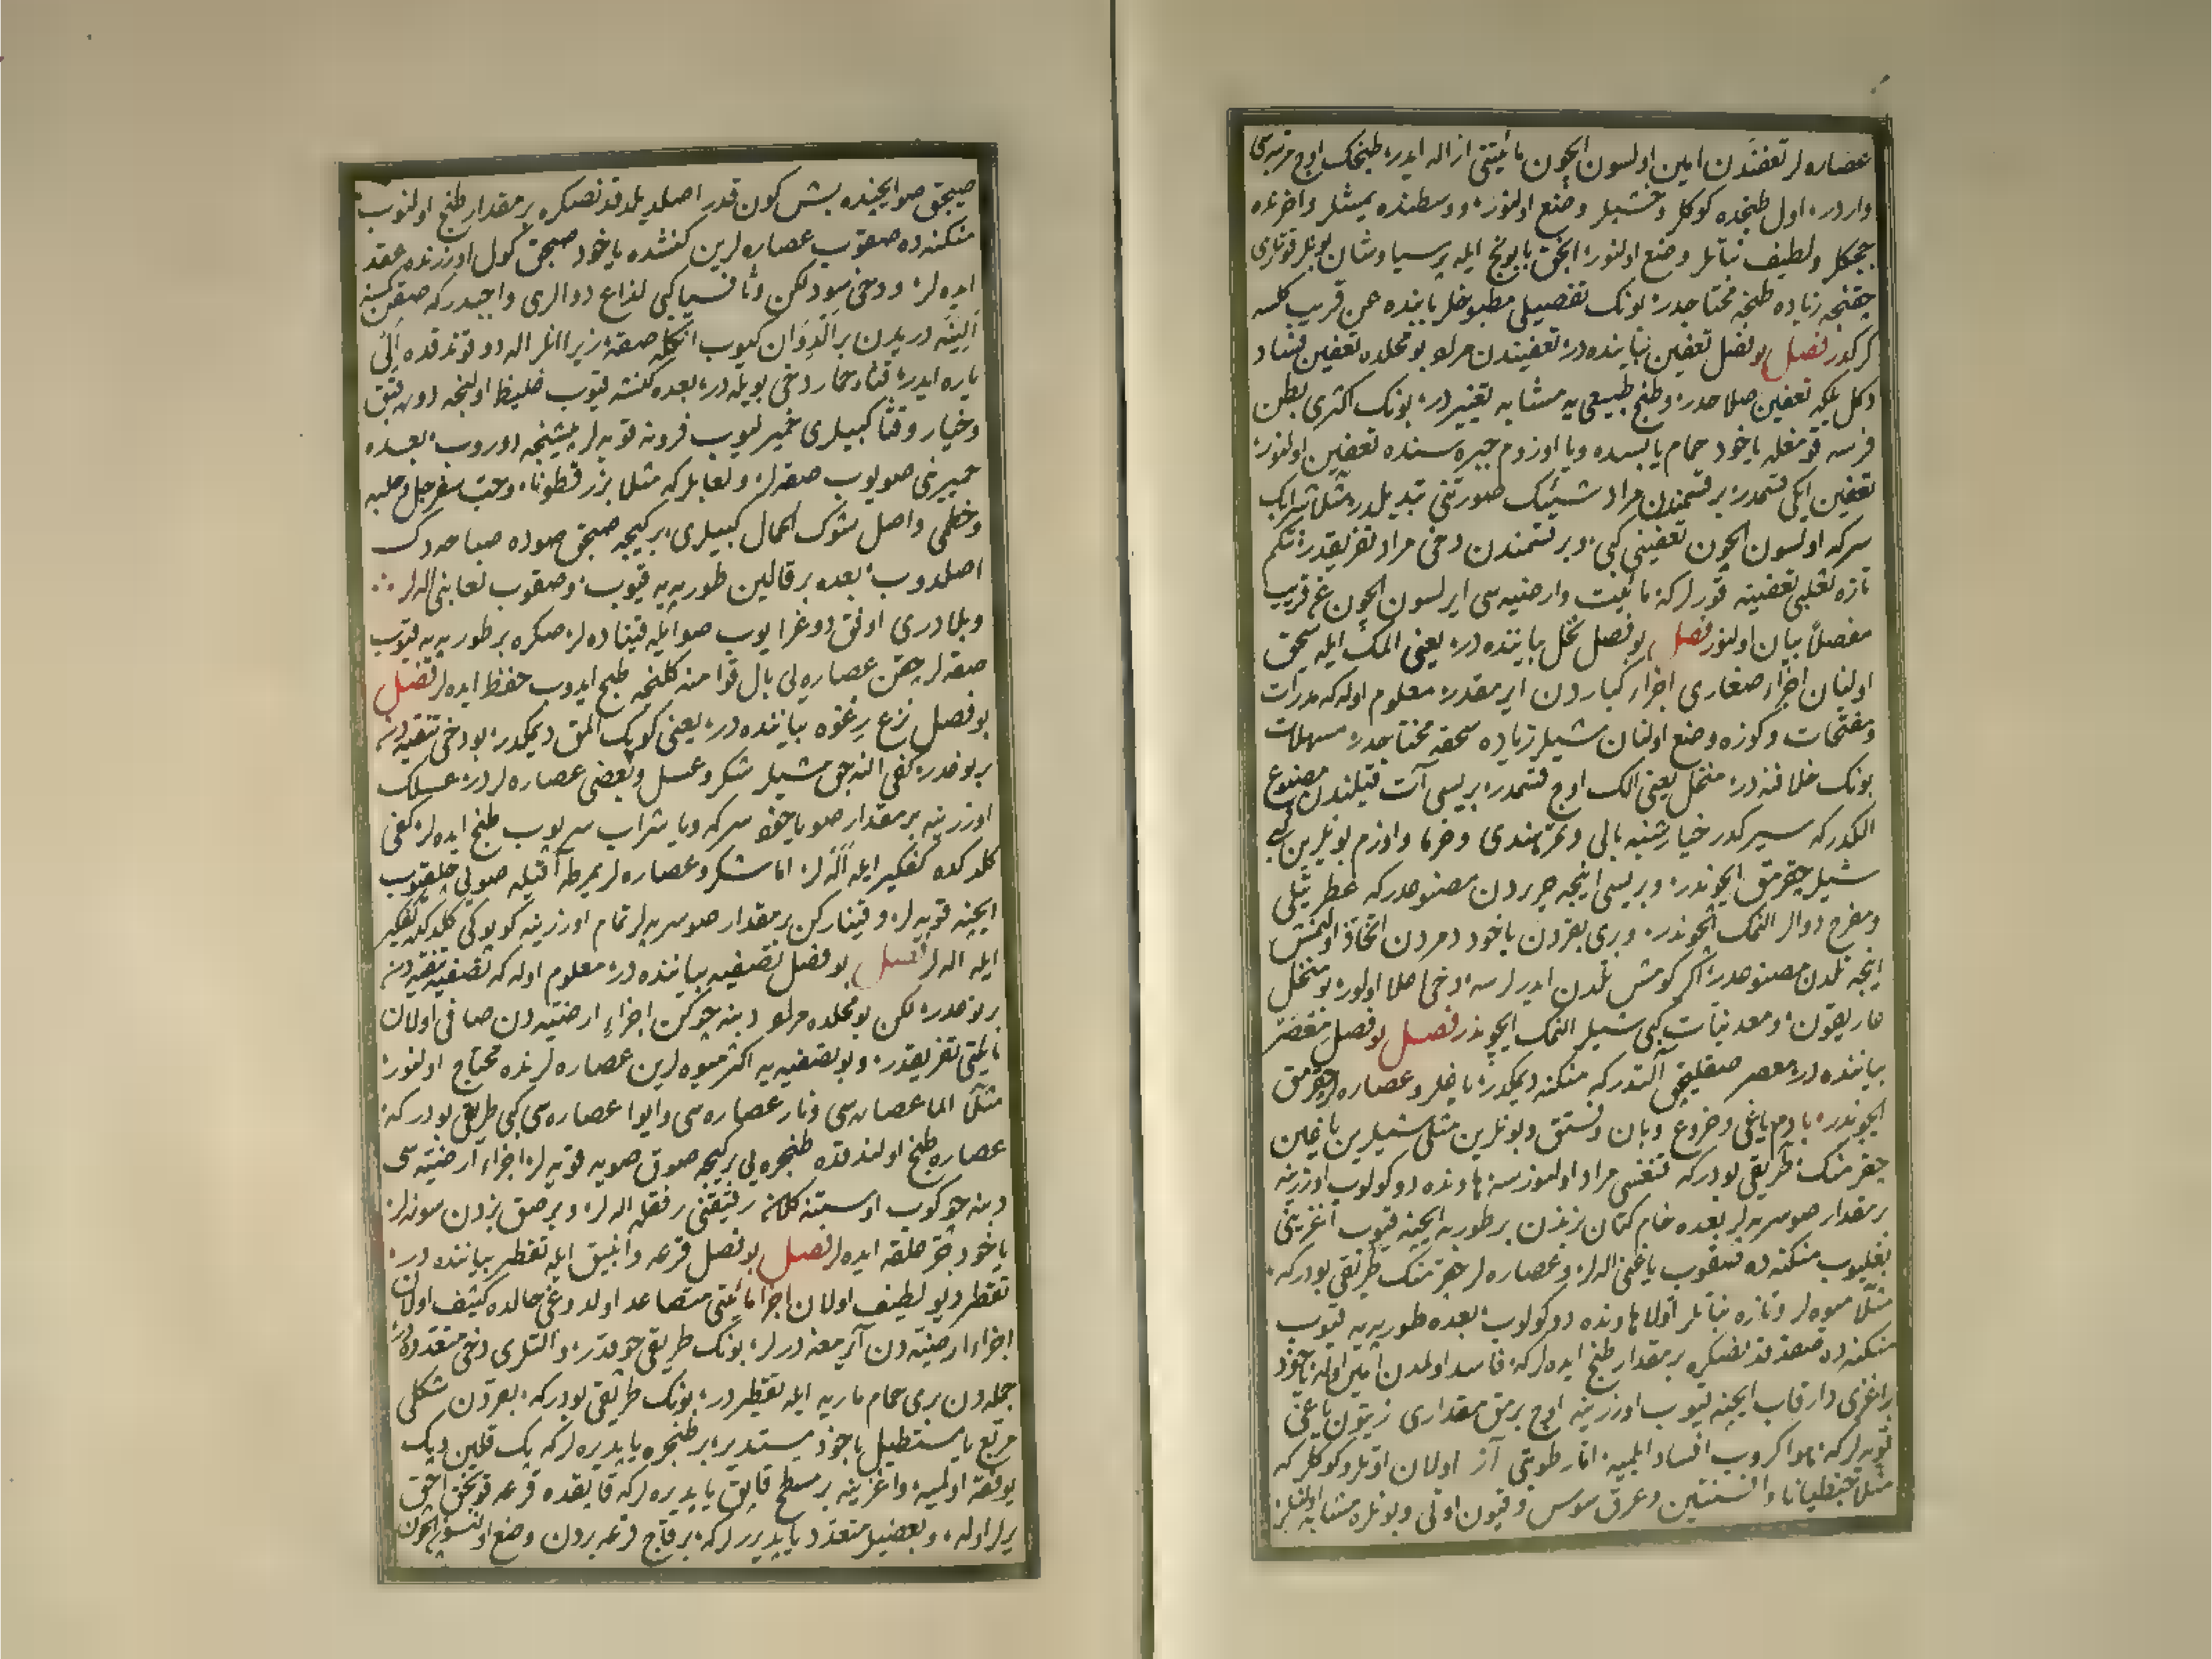 عصاره لر تعفنّدن امین اولسون ایچون مائیتنی ازاله ایدر؛ طبخك اوچ مرتبه سی
واردر؛ اول طبخده کوکلر وخشبلر وضع اولنور؛ ووسطنده یمشلر واخرنده
چیچکلر ولطیف نباتلر وضع اولنور؛ انجق بابونج ایله پرسیاوشان بونلر قوتلری
چقنجه زیاده طبخه محتاجدر؛ بونك تفصیلی مطبوخلر بابنده عن قریب کلسه
کرکدر فصل بو فصل تعفین بیاننده در؛ تعفیندن مراد بو محلده تعفین فساد
دکل بلکه تعفین صلاحدر؛ وطبخ طبیعی یه مشابه تغییردر؛ بونك اکثری بطن
فرسه قومغله یاخود حمام یابسده ویا اوزوم جبره سنده تعفین اولنور؛
تعفین ایکی قسمدر؛ بر قسمندن مراد شیئك صورتنی تبدیلدر؛ مثلا شرابك
سرکه اولسون ایچون تعفینی کبی؛ وبر قسمندن دخی مراد تفریقدر؛ نتکم
تازه تعفینه قورلرکه مائیت وارضیه سی ایرلسون ایچون عن قریب
مفصلاً بیان اولنور فصل بو فصل نخل بیاننده در؛ یعنی المك ایله سحق
اولنان اجزاء صغاری اجزاء کباردن ایرمقدر؛ معلوم اوله که مدرات
ومفتحات وکوزه وضع اولنان شیلر زیاده سحقه محتاجدر؛ مسهلات
بونك خلافنه در؛ منخل یعنی الك اوچ قسمدر؛ بریسی آت قیلندن مصنوع
الکدر که سیرکدر خیارشنبه بالی وتمرهندی وخرما واوزم بونلرین کبی
شیلر چقرمق ایچوندر؛ وبریسی اینجه حریردن مصنوعدر که عطریلی
ومفرح دوالر المك ایچوندر؛ وبری بقردن یاخود دمردن اتخاذ اولنمش
اینجه تلدن مصنوعدر؛ اکر کومش تلدن ایدرلرسه دخی اعلا اولور؛ بو منخل
غاریقون؛ ومعدنیات کبی شیلر المك ایچوندر فصل بو فصل معصر
بیاننده در؛ معصر صقلیجق آلتدر که منکنه دیمکدر؛ یاغلر وعصاره لر چقرمق
ایچوندر؛ بادم یاغی وخروع وبان وفستق وبونلرین مثلی شیلرین یاغین
چقرمنك طریقی بودر که هاونده دوکلوب اوزرینه
بر مقدار صو سرپه لر بعده خام کتان بزندن بر طوربه ایچنه قیوب اغزینی
بغلیوب منکنه ده صقوب یاغنی اله لر؛ وعصاره لر چقرمنك طریقی بودر که
مثلا میوه لر وتازه نباتلر اولا هاونده دوکلوب؛ بعده طوربه یه قیوب
منکنه ده صقدقدنصکره بر مقدار طبخ ایده لر که؛ فاسد اولمدن امین اوله یاخود
اغزی دار قاب ایچنه قیوب اوزرینه اوچ برمق مقداری زیتون یاغنی
قویه لر که؛ هوا کروب افساد ایلمیه؛ اما رطوبتی آز اولان اوتلر وکوکلر که
مثلا جنطیانا وافسنتین وعرق سوس وقیون اوتی وبونلره مشابه
صیجق صو ایچنده بش کون قدر اصلدیلدقدنصکره بر مقدار طبخ اولنوب
منکنه ده صقوب عصاره لرین کنشده یاخود صیجق کول اوزرنده عقد
ایده لر؛ ودخی کبی لذاع دوالری واجبدر که صقن کسنه
الینه دریدن بر الدوان کیوب انکله صقه؛ زیرا انلر اله دوقوندقده الی
یاره ایدر؛ قثاء حمار دخی بویله در؛ بعده کنشه قیوب غلیظ اولنجه
وخیار وقثا کبیلری خمیرلیوب فرونه قویه لر پیشنجه دوروب؛ بعده
خمیرینی صویوب صقه لر؛ ولعابلر که مثلا بزر قطونا؛ وحب سفرجل وحلبه
وخطمی واصل شوك الجمال کبیلری؛ بر کیجه صیجق صوده صباحه دك
اصلدوب؛ بعده بر قالین طوربه یه قیوب؛ وصقوب لعابنی اله لر
وبلادری اوفق دوغرایوب صو ایله قینادە لر؛ صکره بر طوربه یه قیوب
صقه لر چقن عصاره یی بال قوامنه کلنجه طبخ ایدوب حفظ ایده لر فصل
بو فصل نزع رغوه بیاننده در؛ یعنی کوپك المق دیمکدر؛ بو دخی تنقیه دن
بر نوعدر؛ کفی النه جق شیلر شکر وعسل وبعضی عصاره لردر؛ عسلك
اوزرینه بر مقدار صو یاخود سرکه ویا شراب سرپوب طبخ ایده لر؛ کفی
کلدکده کفکیر ایله آله لر؛ اما شکر وعصاره لر یمرطه آقیله صویی چلقیوب
ایچنه قویه لر؛ وقینارکن بر مقدار صو سرپه لر تمام اوزرینه کوپوکی کلدکده کفکیر
ایله اله لر فصل بو فصل تصفیه بیاننده در؛ معلوم اوله که تصفیه تنقیه دن
بر نوعدر؛ لکن بو محلده مراد دبنه چوکن اجزاء ارضیه دن صافی اولان
مائیتی تفریقدر؛ وبو تصفیه یه اکثر میوه لرین عصاره لرنده محتاج اولنور؛
مثلا الما عصاره سی ونار عصاره سی وایوا عصاره سی کبی طریقی بودر که؛
عصاره طبخ اولندقده طنجره یی بر کیجه صوق صویه قویه لر؛ اجزاء ارضیه سی
دبنه چوکوب اوستنه کلانه رقیقنی رفقله اله لر؛ وبر صق بزدن سوزه لر؛
یاخود جر علقه ایده لر فصل بو فصل قرعه وانبیق ایله تقطیر بیاننده در؛
تقطیر دیو لطیف اولان اجزا مائیتی متصاعد اولدوغی حالده کثیف اولان
اجزاء ارضیه دن آیرمغه درلر؛ بونك طریقی چوقدر؛ والتلری دخی متعدددر؛
جمله دن بری حمام ماریه ایله تقطیردر؛ بونك طریقی بودر که؛ بقردن شکلی
مربع یا مستطیل یاخود مستدیر؛ بر طنجره یاپدیره لر که پك قلین وپك
یوفقه اولمیه؛ واغزینه بر مسطح قاپق یاپدیره لر که قاپقده قرعه قویجق انجق
یرلر اوله؛ وبعضیلر متعدد یاپدیررلر که؛ بر قاچ قرعه بردن وضع اولنسون ایچون